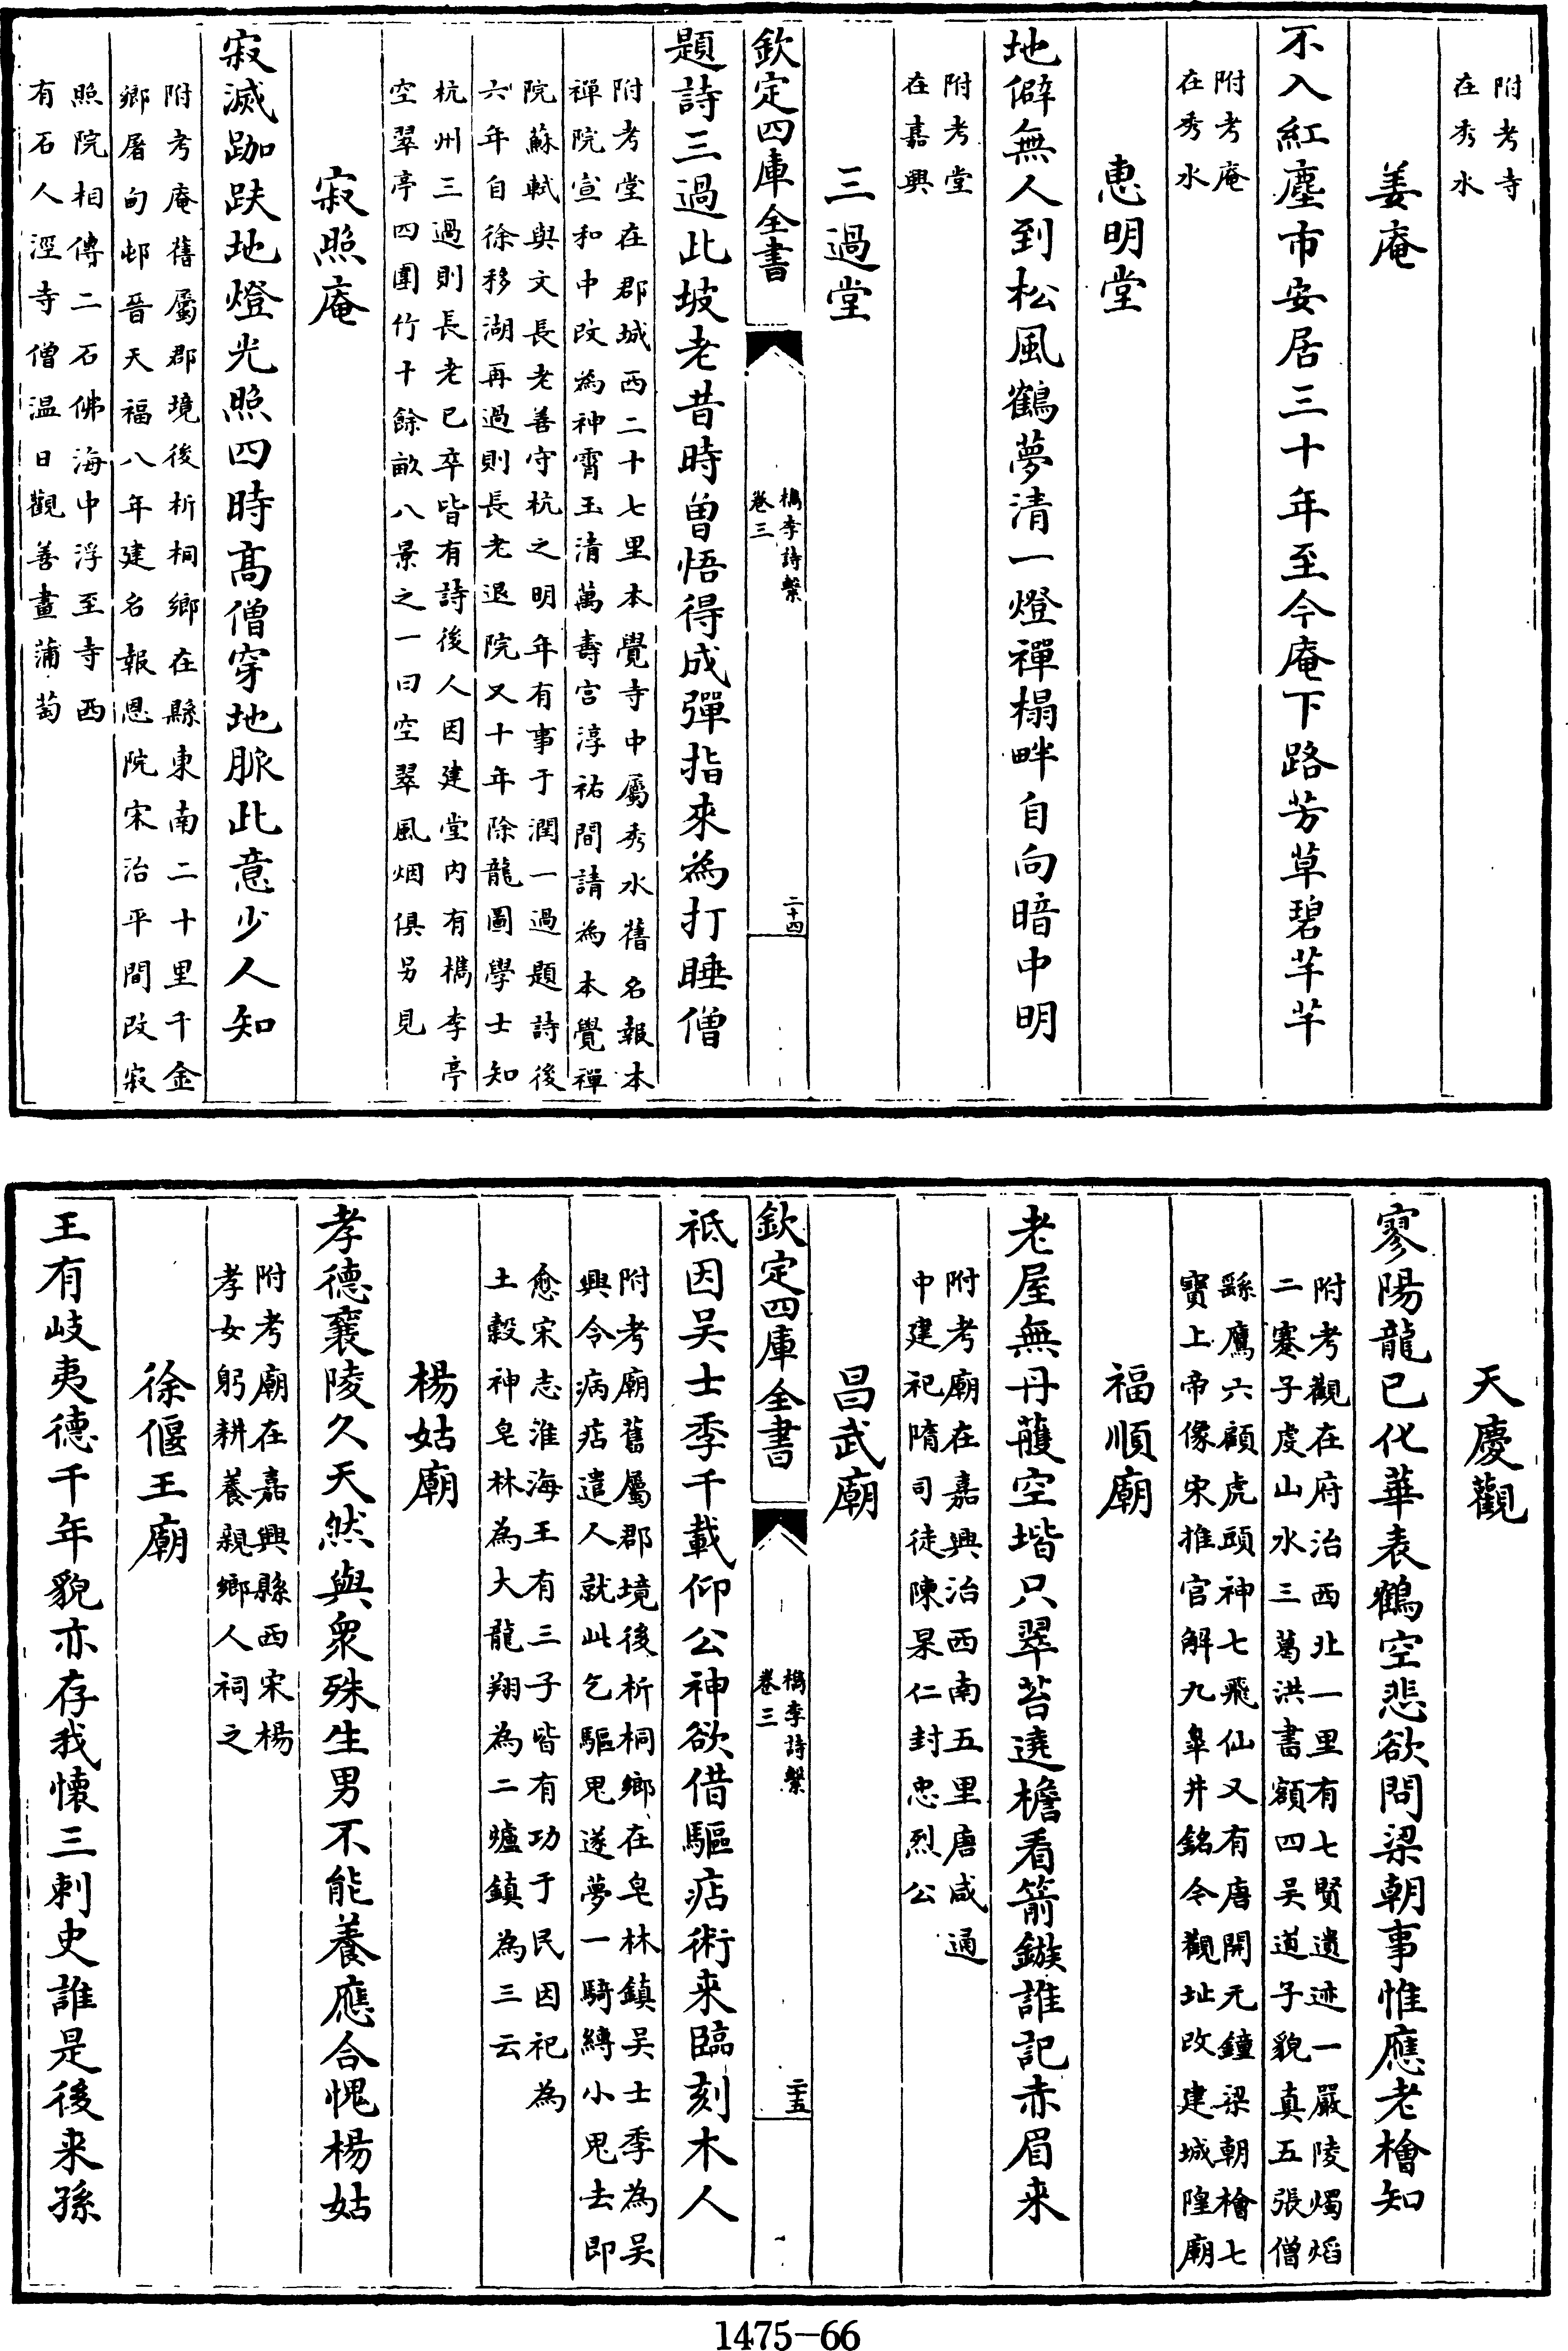 附考寺
在秀水
姜庵
不入紅塵市安居三十年至今庵下路芳草碧芊芊
附考庵
在秀水
惠明堂
地僻無人到松風鶴夢清一燈禪榻畔自向暗中明
附考堂
在嘉興
三過堂
欽定四庫全書
檇李詩繫
卷三
二十四
題詩三過此坡老昔時曾悟得成彈指來為打睡僧
附考堂在郡城西二十七里本覺寺中屬秀水舊名報本
禪院宣和中改為神霄玉清萬壽宮淳祐間請為本覺禪
院蘇軾與文長老善守杭之明年有事于潤一過題詩後
六年自徐移湖再過則長老退院又十年除龍圖學士知
杭州三過則長老已卒皆有詩後人因建堂內有檇李亭
空翠亭四圍竹十餘畝八景之一曰空翠風烟俱另見
寂照庵
寂滅跏趺地燈光照四時髙僧穿地脈此意少人知
附考庵舊屬郡境後析桐鄉在縣東南二十里千金
鄉屠甸邨晉天福八年建名報恩院宋治平間改寂
照院相傳二石佛海中浮至寺西
有石人涇寺僧温日觀善畫蒲萄
天慶觀
寥陽龍已化華表鶴空悲欲問梁朝事惟應老檜知
附考觀在府治西北一里有七賢遺迹一嚴陵燭熖
二蹇子虔山水三葛洪書額四吴道子貌真五張僧
繇鷹六顧虎頭神七飛仙又有唐開元鐘梁朝檜七
寶上帝像宋推官解九臯井銘今觀址改建城隍廟
福順廟
老屋無丹雘空堦只翠苔遶檐看箭鏃誰記赤眉来
附考廟在嘉興治西南五里唐咸通
中建祀隋司徒陳杲仁封忠烈公
昌武廟
欽定四庫全書
檇李詩繫
卷三
二十五
祗因吴士季千載仰公神欲借驅痁術来臨刻木人
附考廟舊屬郡境後析桐鄉在皂林鎮吴士季為吴
興令病痁遣人就此乞驅鬼遂夢一騎縳小鬼去即
愈宋志淮海王有三子皆有功于民因祀為
土穀神皂林為大龍翔為二爐鎮為三云
楊姑廟
孝德襄陵久天然與衆殊生男不能養應合愧楊姑
附考廟在嘉興縣西宋楊
孝女躬耕養親鄉人祠之
徐偃王廟
王有岐夷德千年貌亦存我懐三刺史誰是後来孫
1475-66